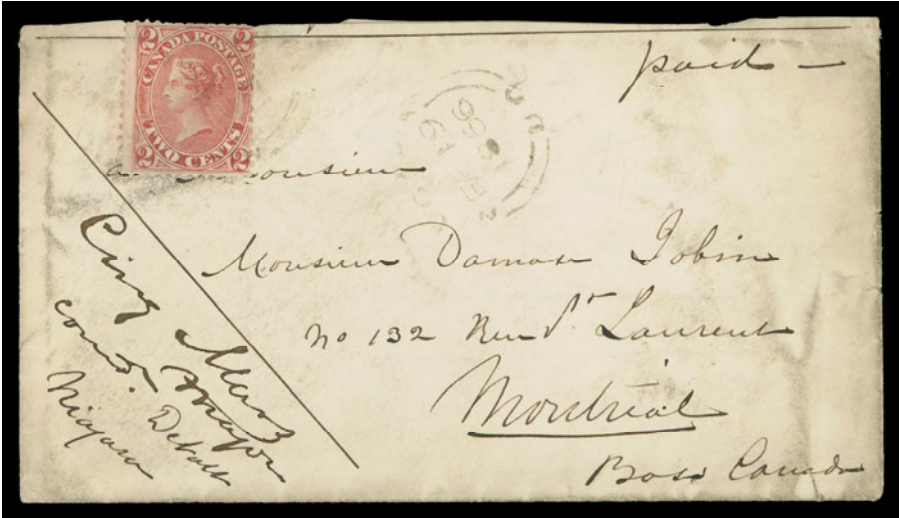 2 CANADA POSTAGE 2
2 TWO CENTS 2
paid —
Monsieur Damase Jobin
No 132 Rue St Laurent
Montréal
Bas Canada
Major
comd. Detach
Niagara